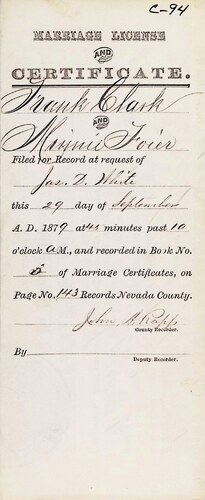 C-94
MARRIAGE LICENSE
AND
CERTIFICATE.
Frank Clark
AND
Minnie Foier
Filed for Record at request of
Jas. D. White
this 29 day of September
A. D. 1879 at 45 minutes past 10
o'clock A M., and recorded in Book No.
of Marriage Certificates, on
Page No. 143 Records Nevada County.
John A. Rapp
County Recorder.
By
Deputy Recorder.